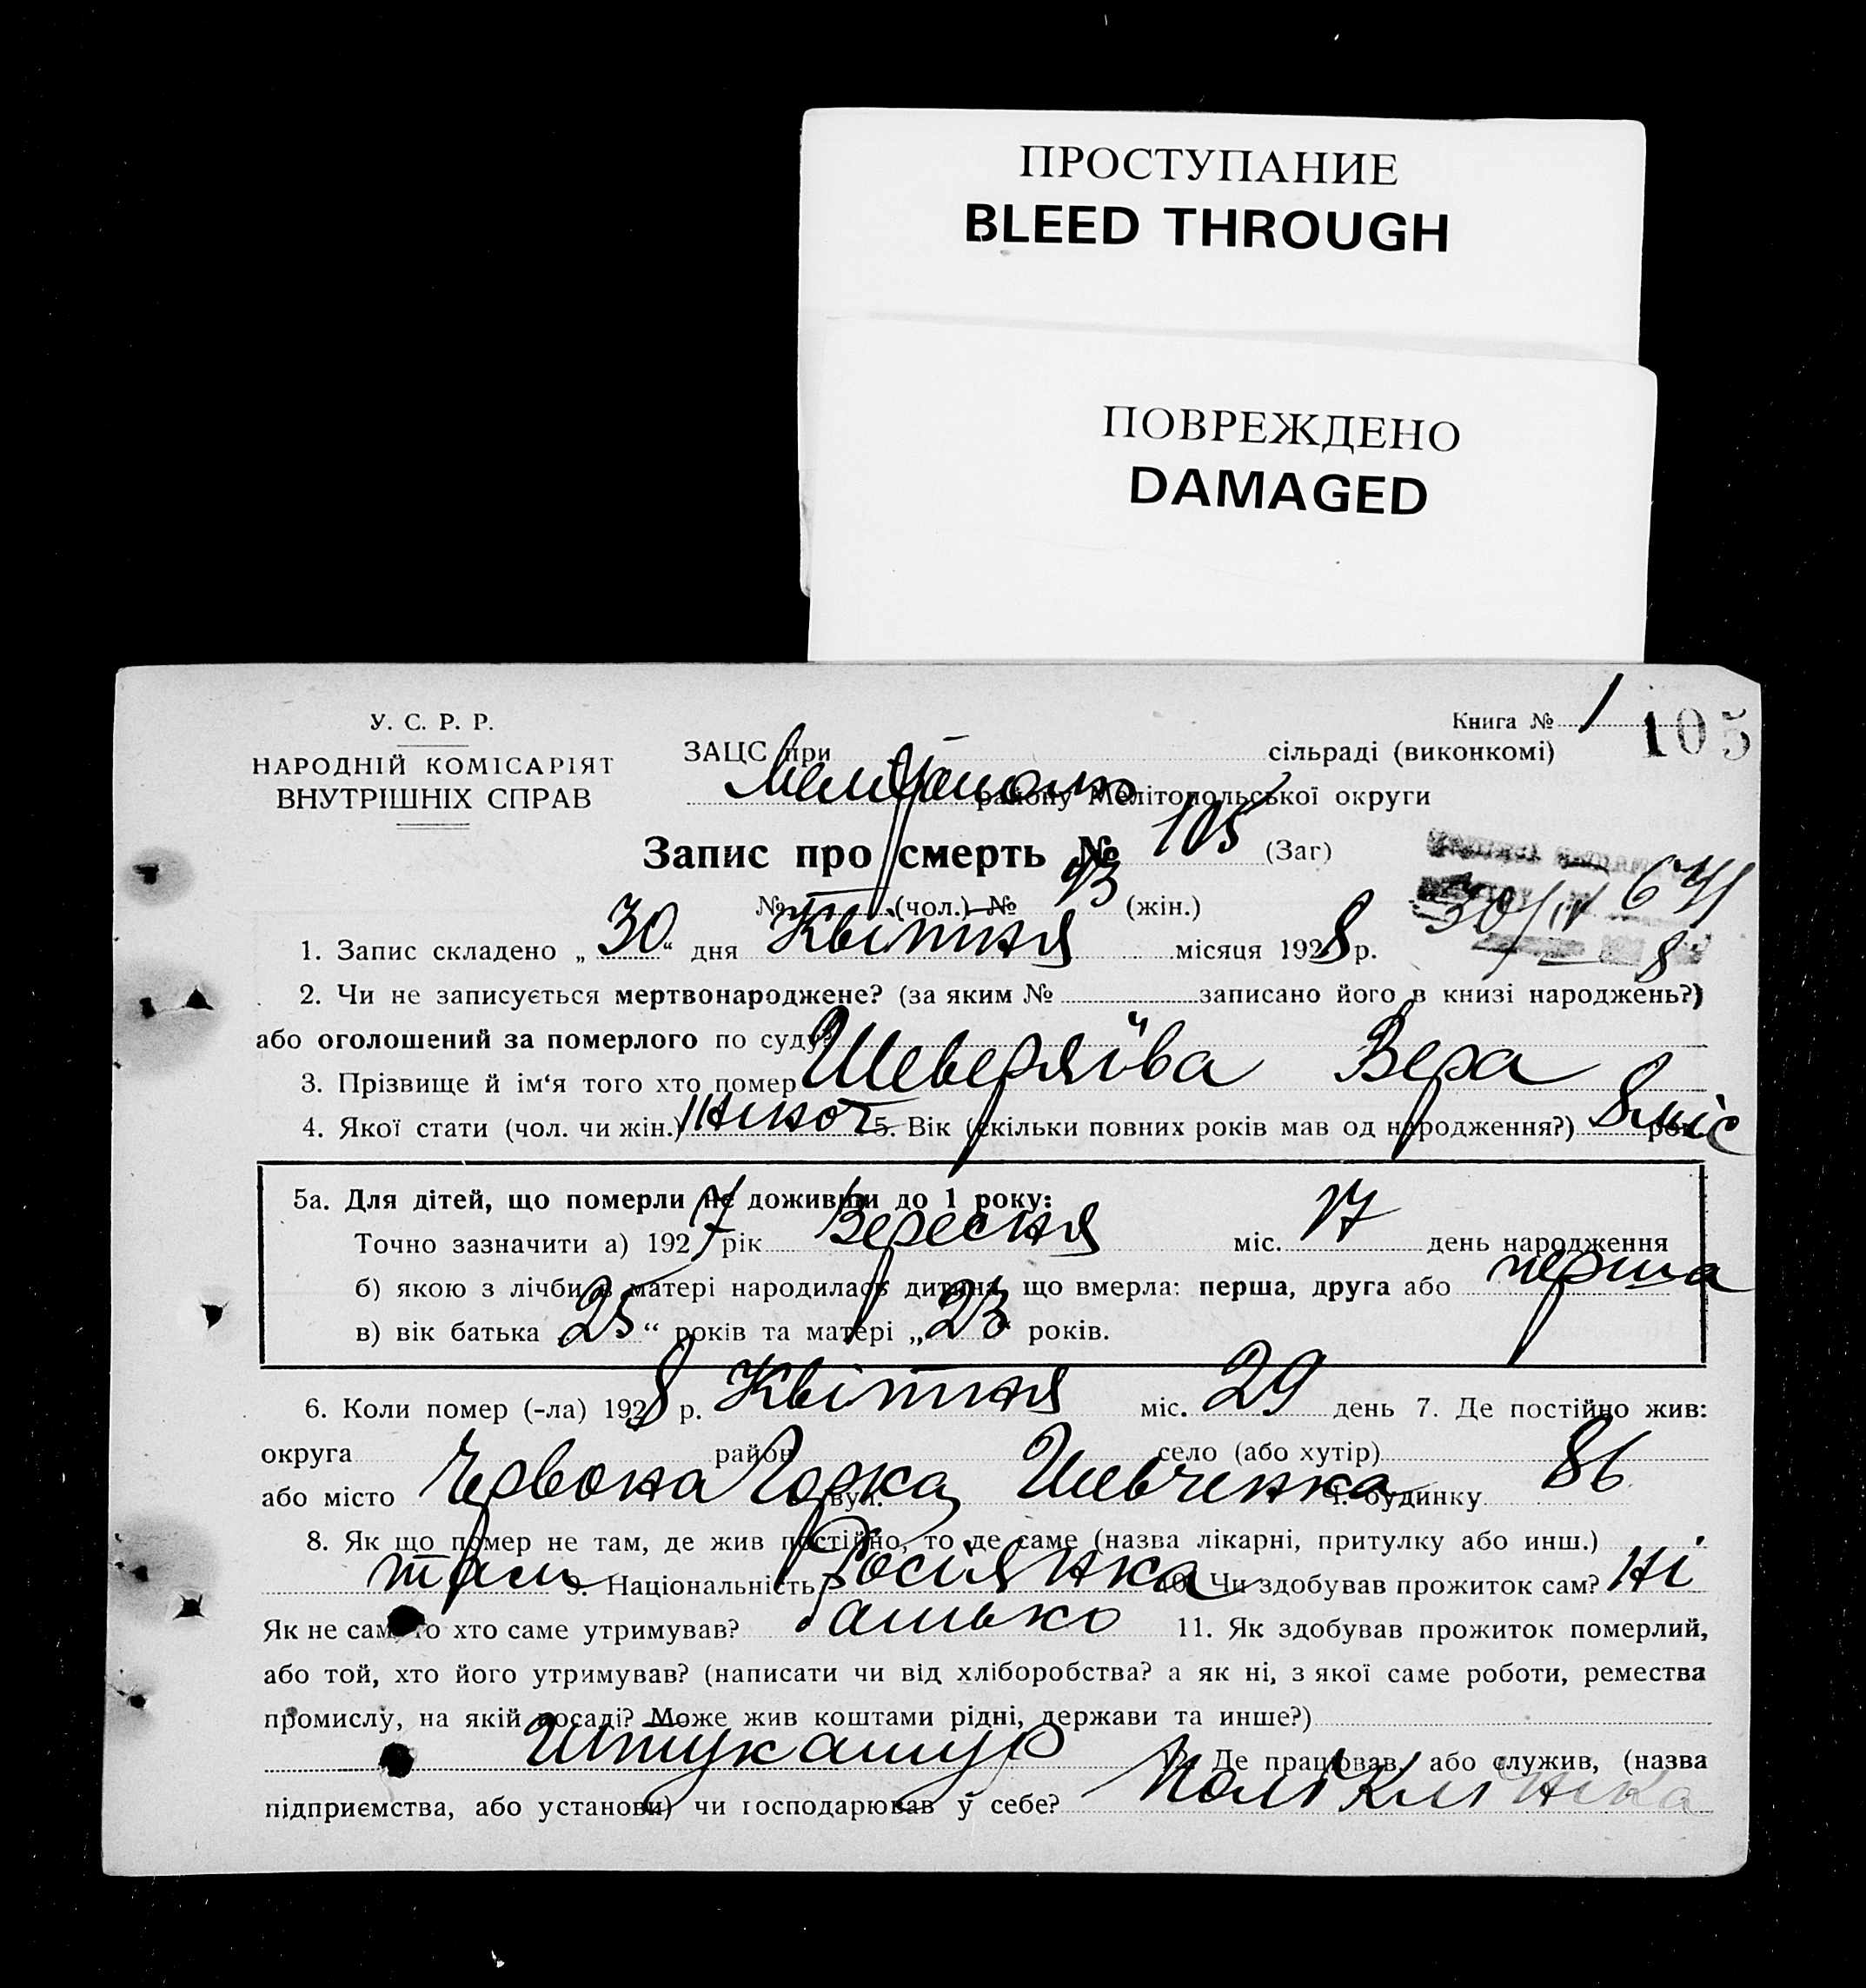 ПРОСТУПАНИЕ
BLEED THROUGH
ПОВРЕЖДЕНО
DAMAGED
У. С. Р. Р.
НАРОДНІЙ КОМІСАРІЯТ
ВНУТРІШНІХ СПРАВ
Книга № 1
105
ЗАЦС при сільраді (виконкомі)
району Мелітопольської округи
Запис про смерть № 105 (Заг)
№ (чол.) № 93 (жін.)
30/IV 641
8
1. Запис складено „ 30 “ дня Квітня місяця 1928 р.
2. Чи не записується мертвонароджене? (за яким № записано його в книзі народжень?)
або оголошений за померлого по суду?
3. Прізвище й ім‘я того хто помер Шеверяїва Вера
4. Якої стати (чол. чи жін.) жіноч 5. Вік (скільки повних років мав од народження?) 8 міс
5а. Для дітей, що померли не доживши до 1 року:
Точно зазначити а) 1927 рік Вересня міс. 17 день народження
б) якою з лічби в матері народилась дитина, що вмерла: перша, друга або перша
в) вік батька „25“ років та матері „23“ років.
6. Коли помер (-ла) 1928 р. Квітня міс. 29 день 7. Де постійно жив:
округа район село (або хутір)
або місто Червона Горка вул. Шевченка ч. будинку 86
8. Як що помер не там, де жив постійно, то де саме (назва лікарні, притулку або инш.)
там 9. Національність Росіянка 10. Чи здобував прожиток сам? Ні
Як не сам, то хто саме утримував? батько 11. Як здобував прожиток померлий,
або той, хто його утримував? (написати чи від хліборобства? а як ні, з якої саме роботи, ремества
промислу, на якій посаді? Може жив коштами рідні, держави та инше?)
Штукатур 12. Де працював, або служив, (назва
підприємства, або установи) чи господарював у себе? Поліклініка